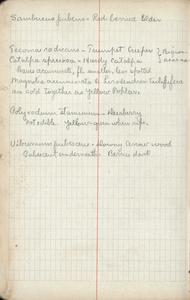 Sambucus pubens - Red berried Elder
Tecoma radicans - Trumpet Creeper
Catalpa speciosa - Hardy Catalpa
leaves acuminate, fl. smaller, less spotted
Magnolia acuminata & Liriodendron tulipifera
are sold together as Yellow Poplar.
Polycodium stamineum - Deerberry
Not edible. Yellow-green when ripe.
Viburnum pubescens - Downy Arrow wood
Pubescent underneath. Berries dark